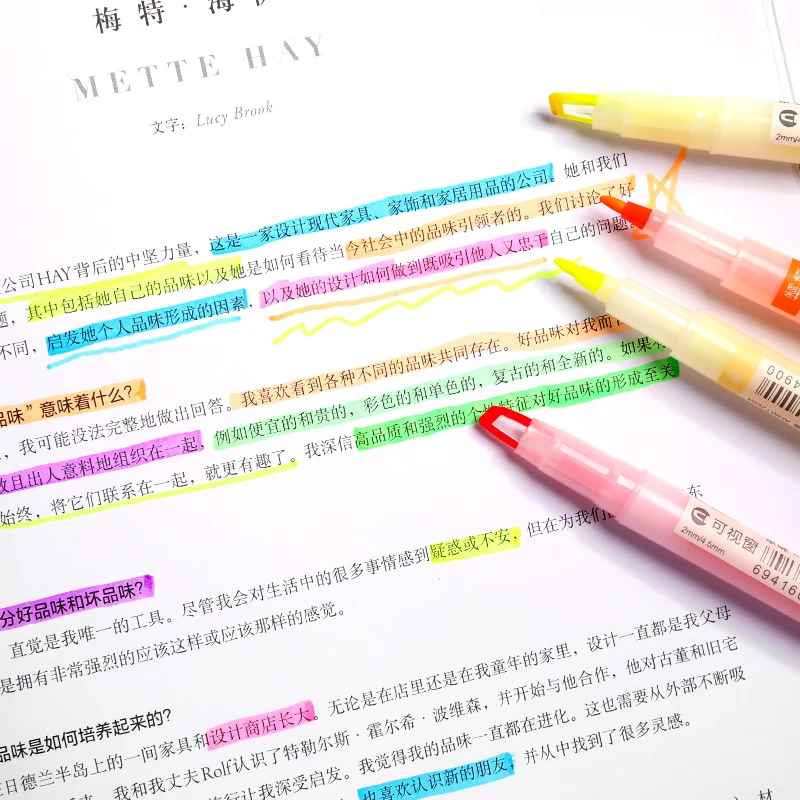 梅特·海
METTE HAY
文字：Lucy Brook
公司HAY背后的中坚力量，这是一家设计现代家具、家饰和家居用品的公司。她和我们
题，其中包括她自己的品味以及她是如何看待当今社会中的品味引领者的。我们讨论了好
不同，启发她个人品味形成的因素，以及她的设计如何做到既吸引他人又忠于自己的问题。
品味”意味着什么？
，我可能没法完整地做出回答。我喜欢看到各种不同的品味共同存在。好品味对我而言
且出人意料地组织在一起，例如便宜的和贵的，彩色的和单色的，复古的和全新的。如果
始终，将它们联系在一起，就更有趣了。我深信高品质和强烈的个性特征对好品味的形成至关
疑惑或不安，但在为我们
分好品味和坏品味？
直觉是我唯一的工具。尽管我会对生活中的很多事情感到
是拥有非常强烈的应该这样或应该那样的感觉。
品味是如何培养起来的？
日德兰半岛上的一间家具和设计商店长大。无论是在店里还是在我童年的家里，设计一直都是我父母
我和我丈夫Rolf认识了特勒尔斯·霍尔希·波维森，并开始与他合作，他对古董和旧宅
旅行让我深受启发。我觉得我的品味一直都在进化。这也需要从外部不断吸
也喜欢认识新的朋友，并从中找到了很多灵感。
材
2mm/4
4900
可视窗
2mm/4.5mm
69416